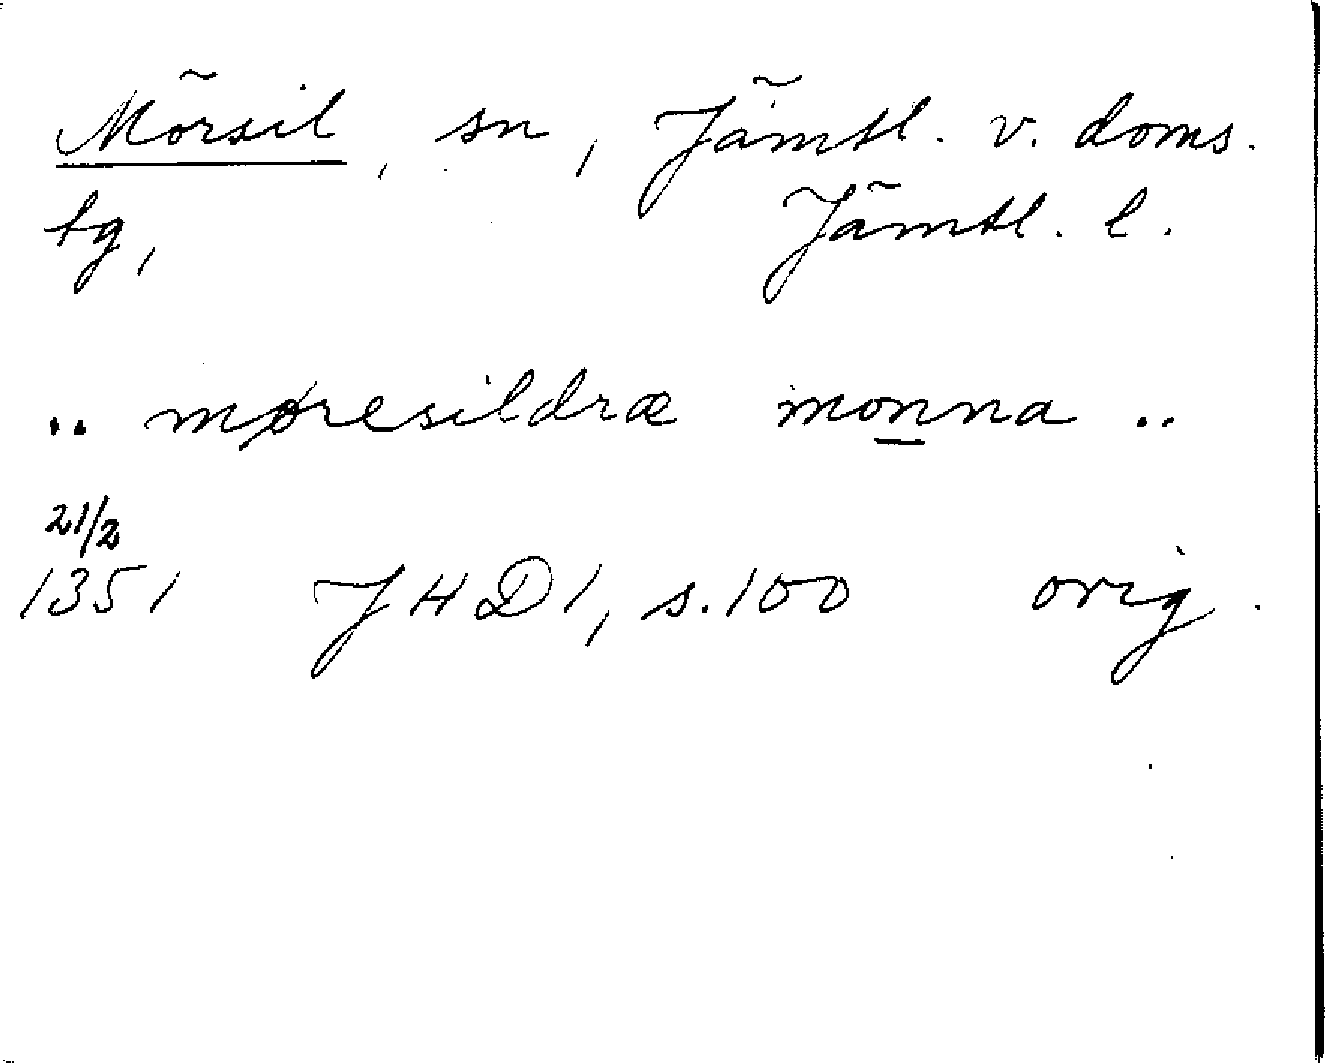 Mörsil, sn, Jämtl. v. doms.
tg, Jämtl. l.
.. møresildræ monna ..
21/2
1351 JHD1, s.100 orig.